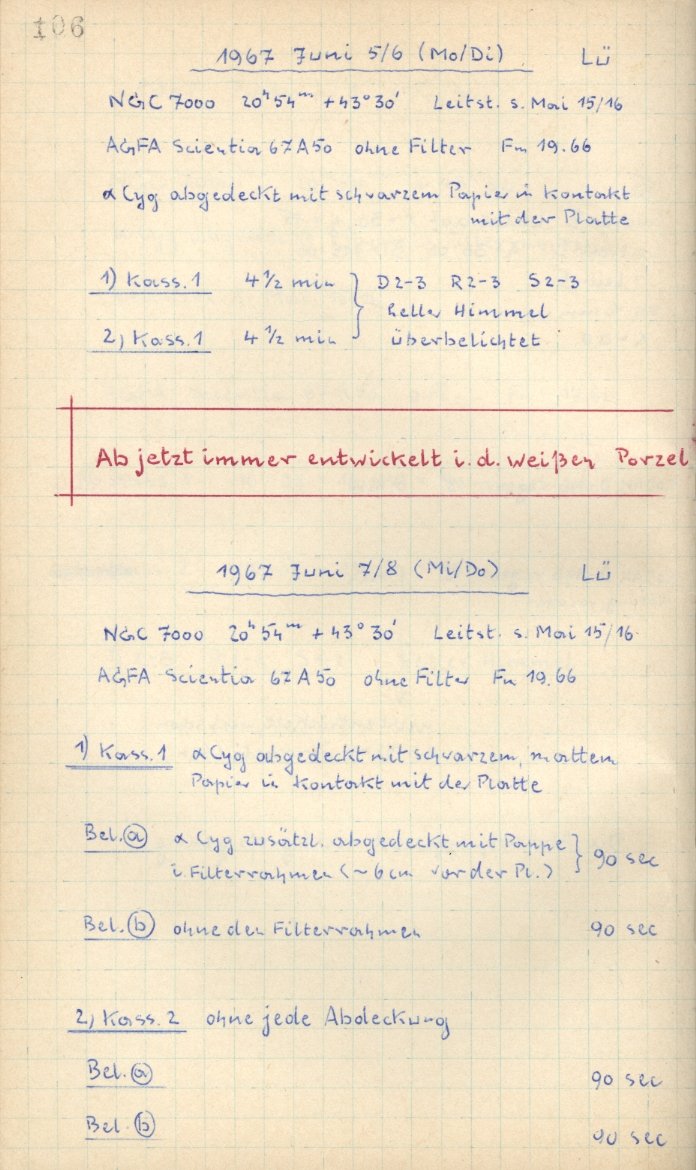 106
1967 Juni 5/6 (Mo/Di) Lü
NGC 7000 20h 54m +43° 30' Leitst. s. Mai 15/16
AGFA Scientia 67A50 ohne Filter Fm 19.66
α Cyg abgedeckt mit schwarzem Papier in Kontakt
mit der Platte
1) Kass. 1 4 1/2 min } D2-3 R2-3 S2-3
heller Himmel
2) Kass. 1 4 1/2 min überbelichtet
Ab jetzt immer entwickelt i. d. weißen Porzel
1967 Juni 7/8 (Mi/Do) Lü
NGC 7000 20h 54m +43° 30' Leitst. s. Mai 15/16
AGFA Scientia 67A50 ohne Filter Fm 19.66
1) Kass. 1 α Cyg abgedeckt mit schwarzem, mattem
Papier in Kontakt mit der Platte
Bel. (a) α Cyg zusätzl. abgedeckt mit Pappe } 90 sec
i. Filterrahmen (~6cm vor der Pl.)
Bel. (b) ohne den Filterrahmen 90 sec
2) Kass. 2 ohne jede Abdeckung
Bel. (a) 90 sec
Bel. (b) 90 sec